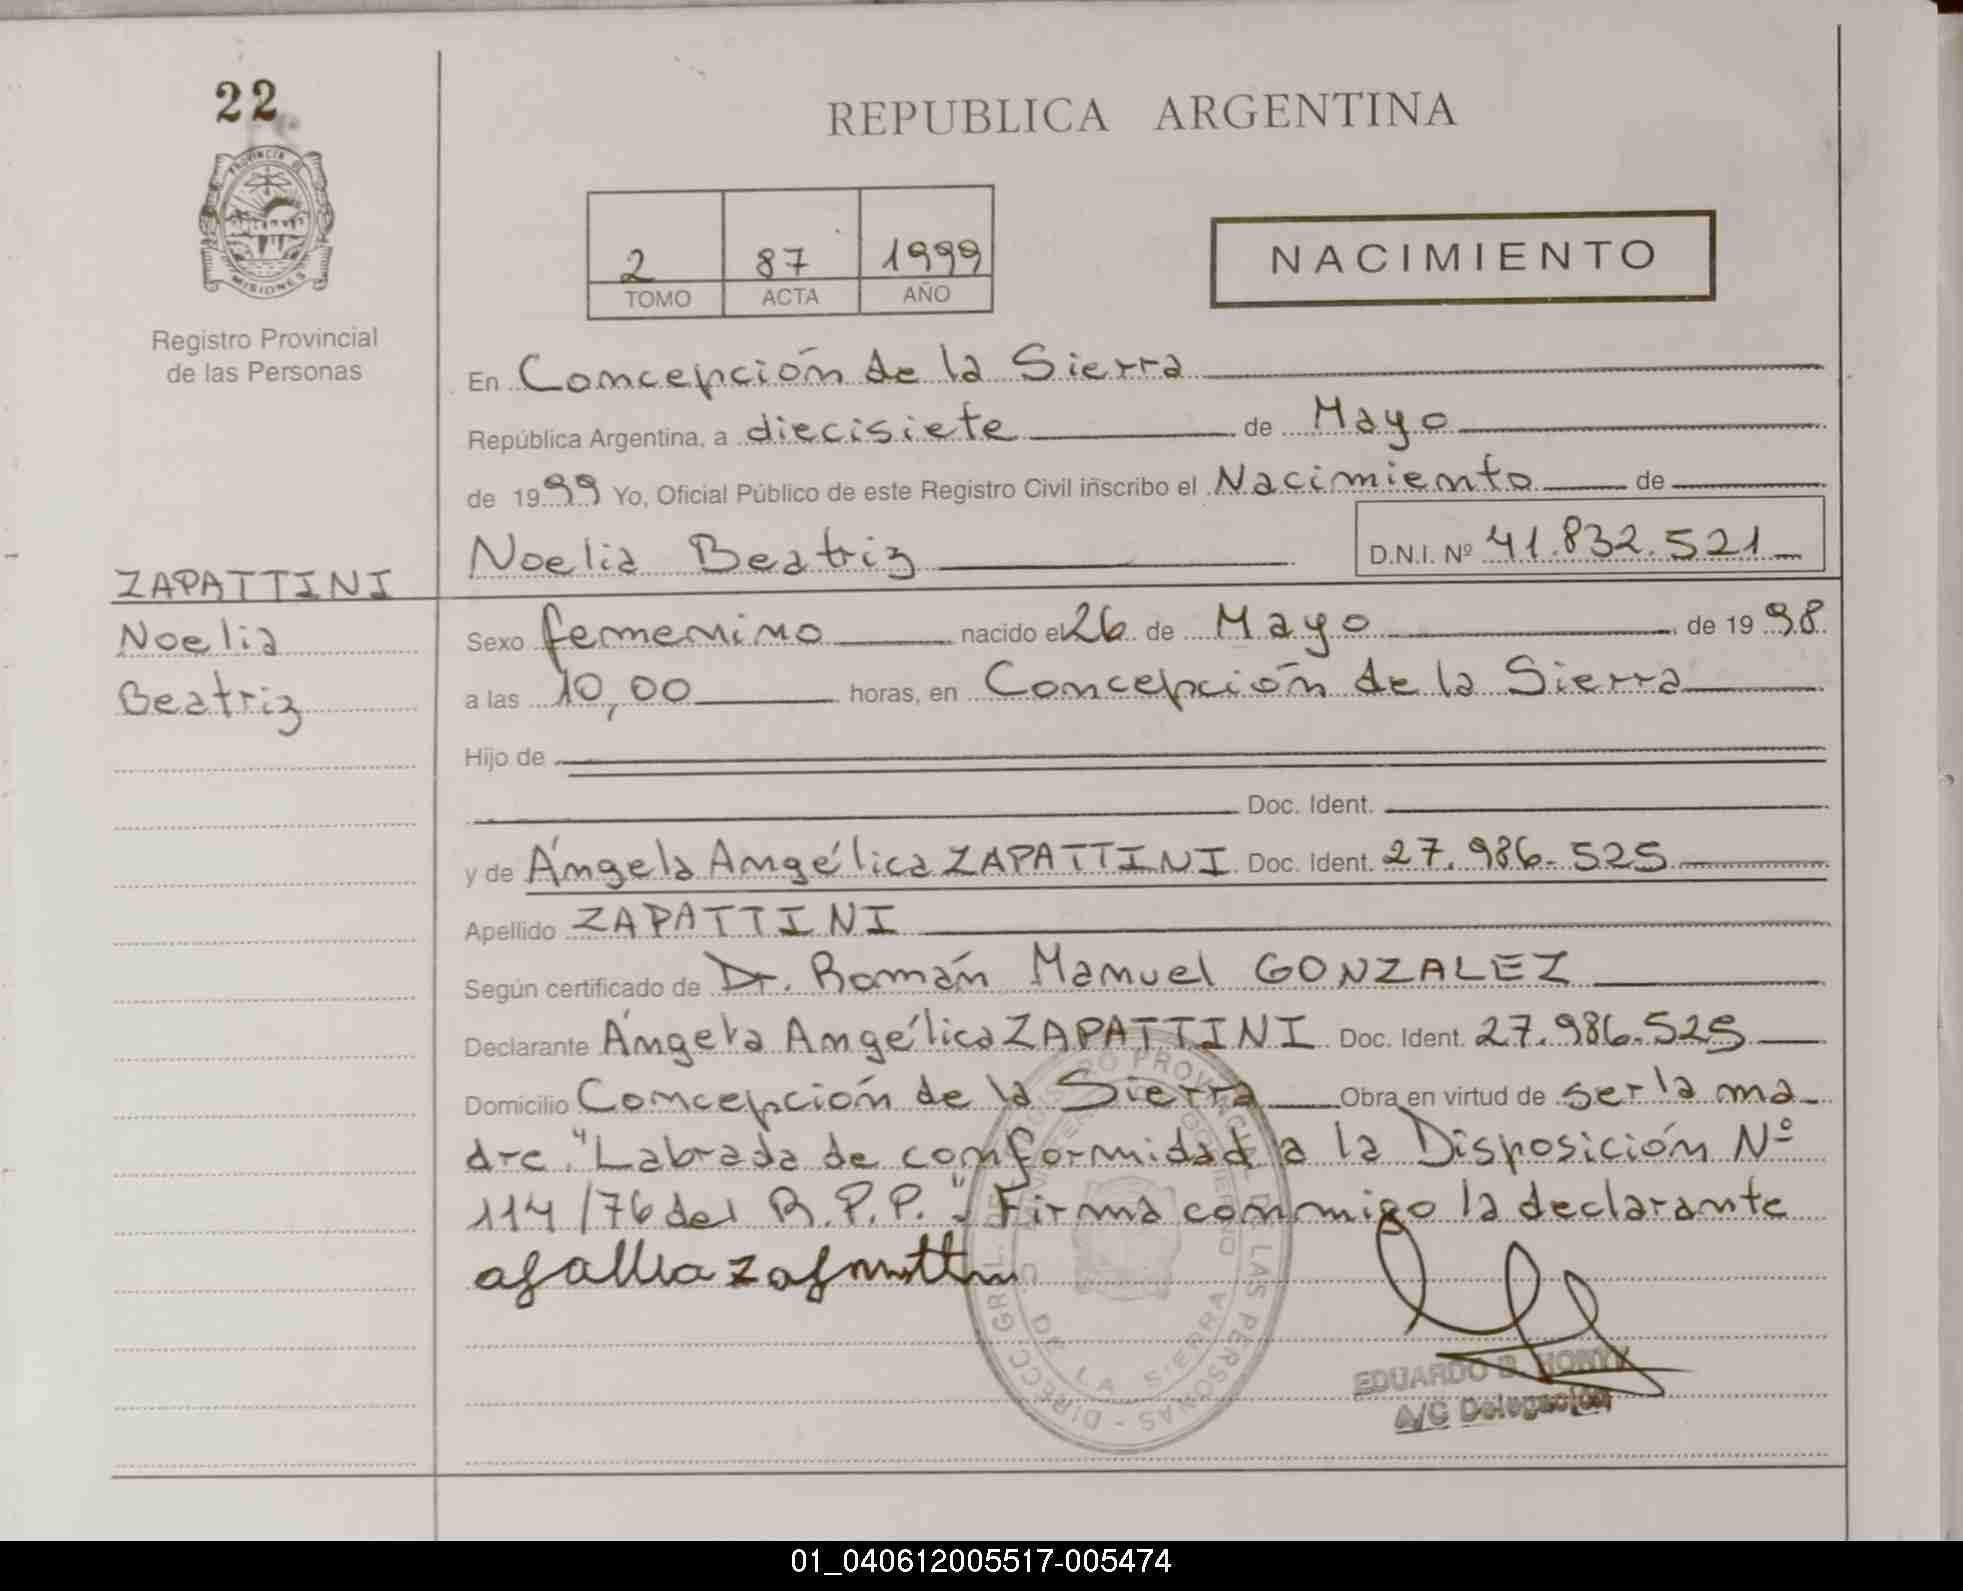 22
PROVINCIA DE
MISIONES
Registro Provincial
de las Personas
REPUBLICA ARGENTINA
2 87 1999
TOMO ACTA AÑO
NACIMIENTO
En Concepción de la Sierra
República Argentina, a diecisiete de Mayo
de 1999 Yo, Oficial Público de este Registro Civil inscribo el Nacimiento de
Noelia Beatriz D.N.I. Nº 41.832.521
ZAPATTINI
Noelia
Beatriz
Sexo femenino nacido el 26 de Mayo de 1998
a las 10,00 horas, en Concepción de la Sierra
Hijo de
Doc. Ident.
y de Ángela Angélica ZAPATTINI Doc. Ident. 27.986.525
Apellido ZAPATTINI
Según certificado de Dr. Román Manuel GONZALEZ
Declarante Ángela Angélica ZAPATTINI Doc. Ident. 27.986.525
Domicilio Concepción de la Sierra Obra en virtud de ser la ma
dre. "Labrada de conformidad a la Disposición Nº
114/76 del R.P.P.". Firma conmigo la declarante
DIRECC. GRAL. DE REGISTRO PROVINCIAL DE LAS PERSONAS
DE LA SIERRA
EDUARDO B.
A/C Delegación
01_040612005517-005474